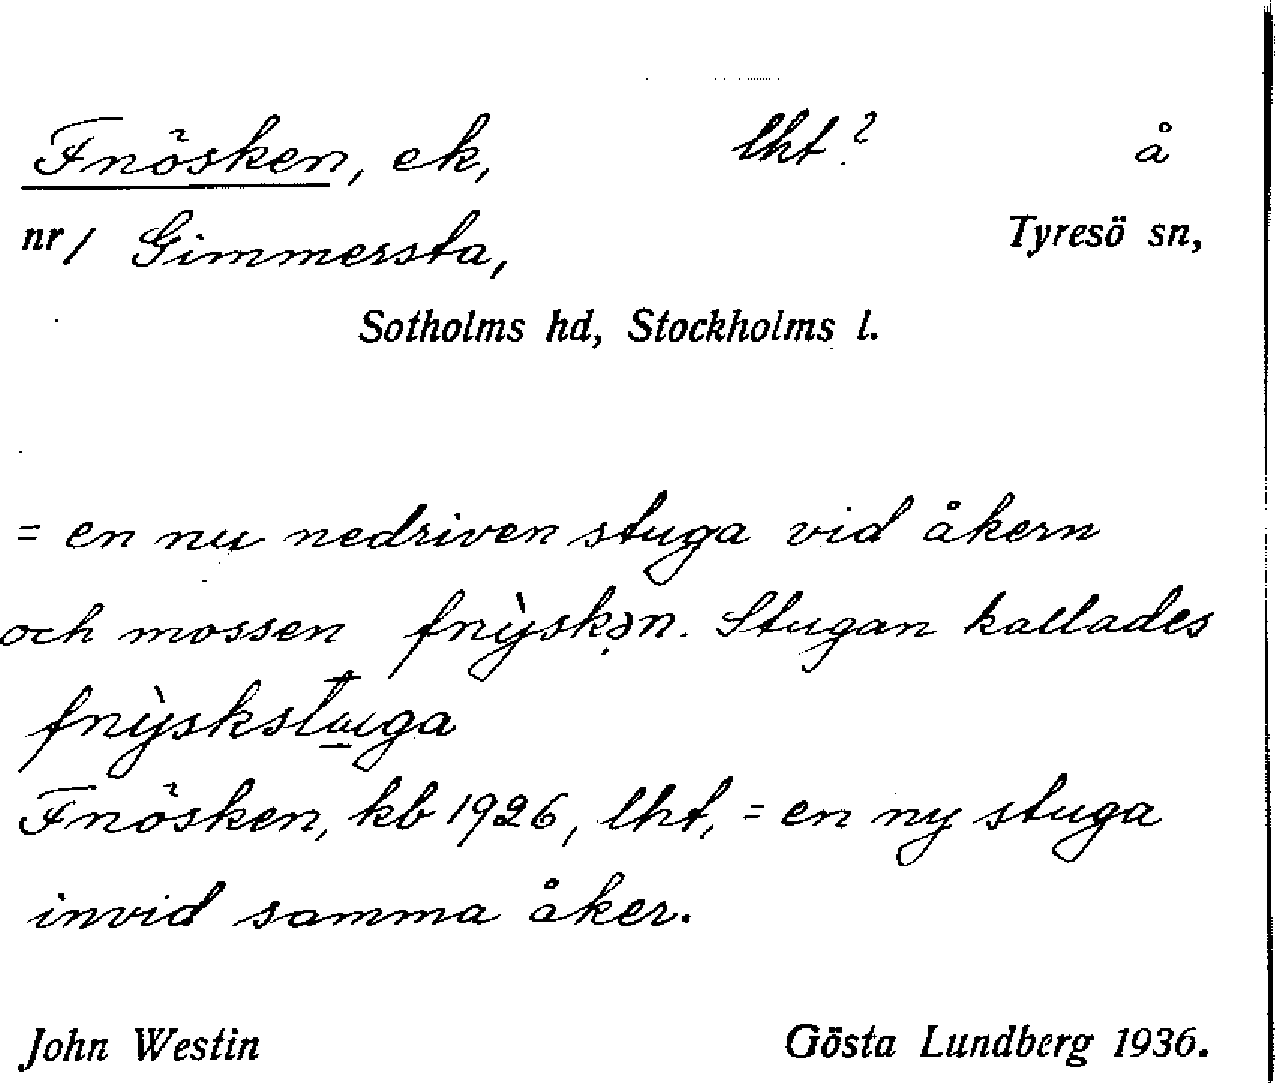 Fnösken, ek, lht? å
nr/ Gimmersta, Tyresö sn,
Sotholms hd, Stockholms l.
= en nu nedriven stuga vid åkern
och mossen fnỳskən. Stugan kallades
fnỳskstuga
Fnösken, kb 1926, lht, = en ny stuga
invid samma åker.
John Westin Gösta Lundberg 1936.